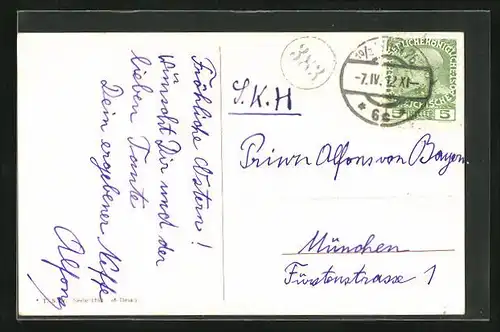 Fröhliche Ostern!
wünscht Dir und der
lieben Tante
Dein ergebener Neffe
Alfons
383
S.K.H
Prinz Alfons von Bayern
München
Fürstenstrasse 1
-7.IV.12 XI-
* 6
5 5